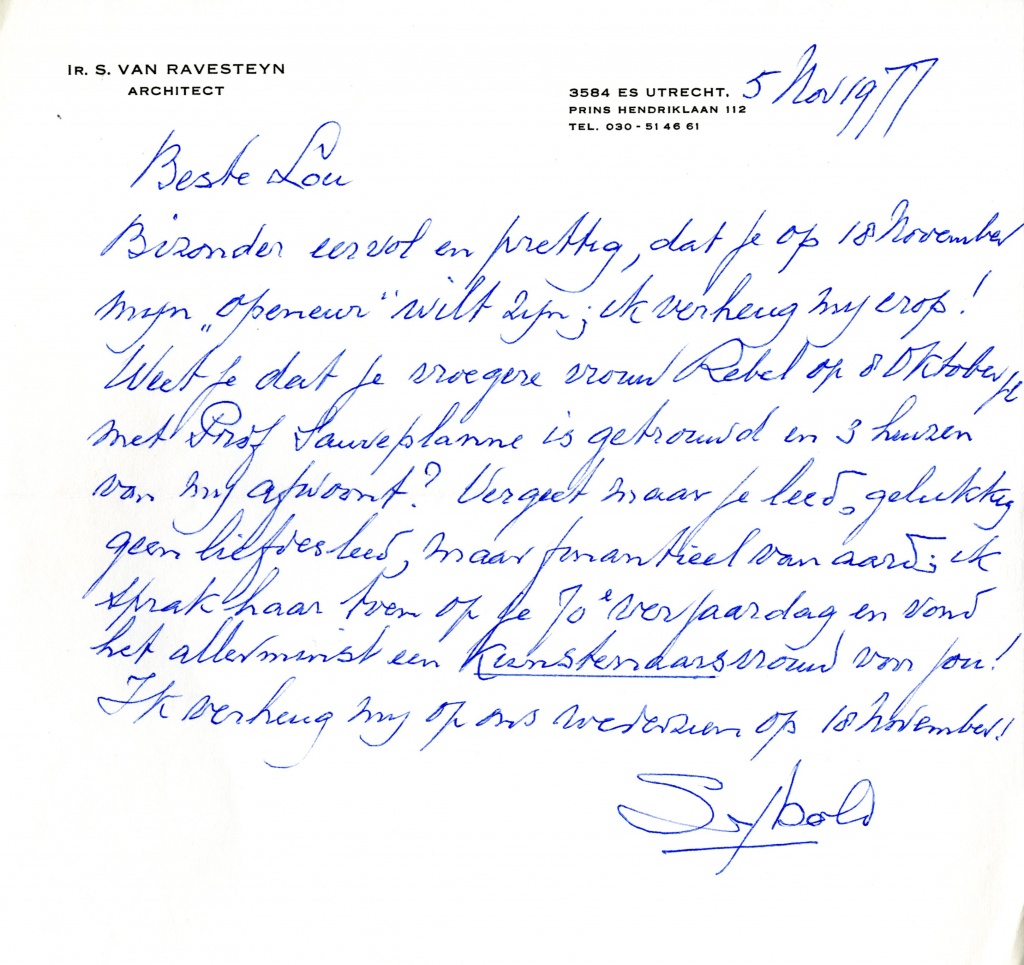 IR. S. VAN RAVESTEYN
ARCHITECT
3584 ES UTRECHT, 5 Nov 1977
PRINS HENDRIKLAAN 112
TEL. 030 - 51 46 61
Beste Lou
Bizonder eervol en prettig, dat je op 18 November
mijn „openeur" wilt zijn; ik verheug mij erop!
Weet je dat je vroegere vrouw Rebel op 8 Oktober jl
met Prof Sauveplanne is getrouwd en 3 huizen
van mij afwoont? Vergeet maar je leed, gelukkig
geen liefdesleed, maar finantieel van aard; ik
sprak haar toen op je 70e verjaardag en vond
het allerminst een Kunstenaarsvrouw voor jou!
Ik verheug mij op ons wederzien op 18 November!
Sybold